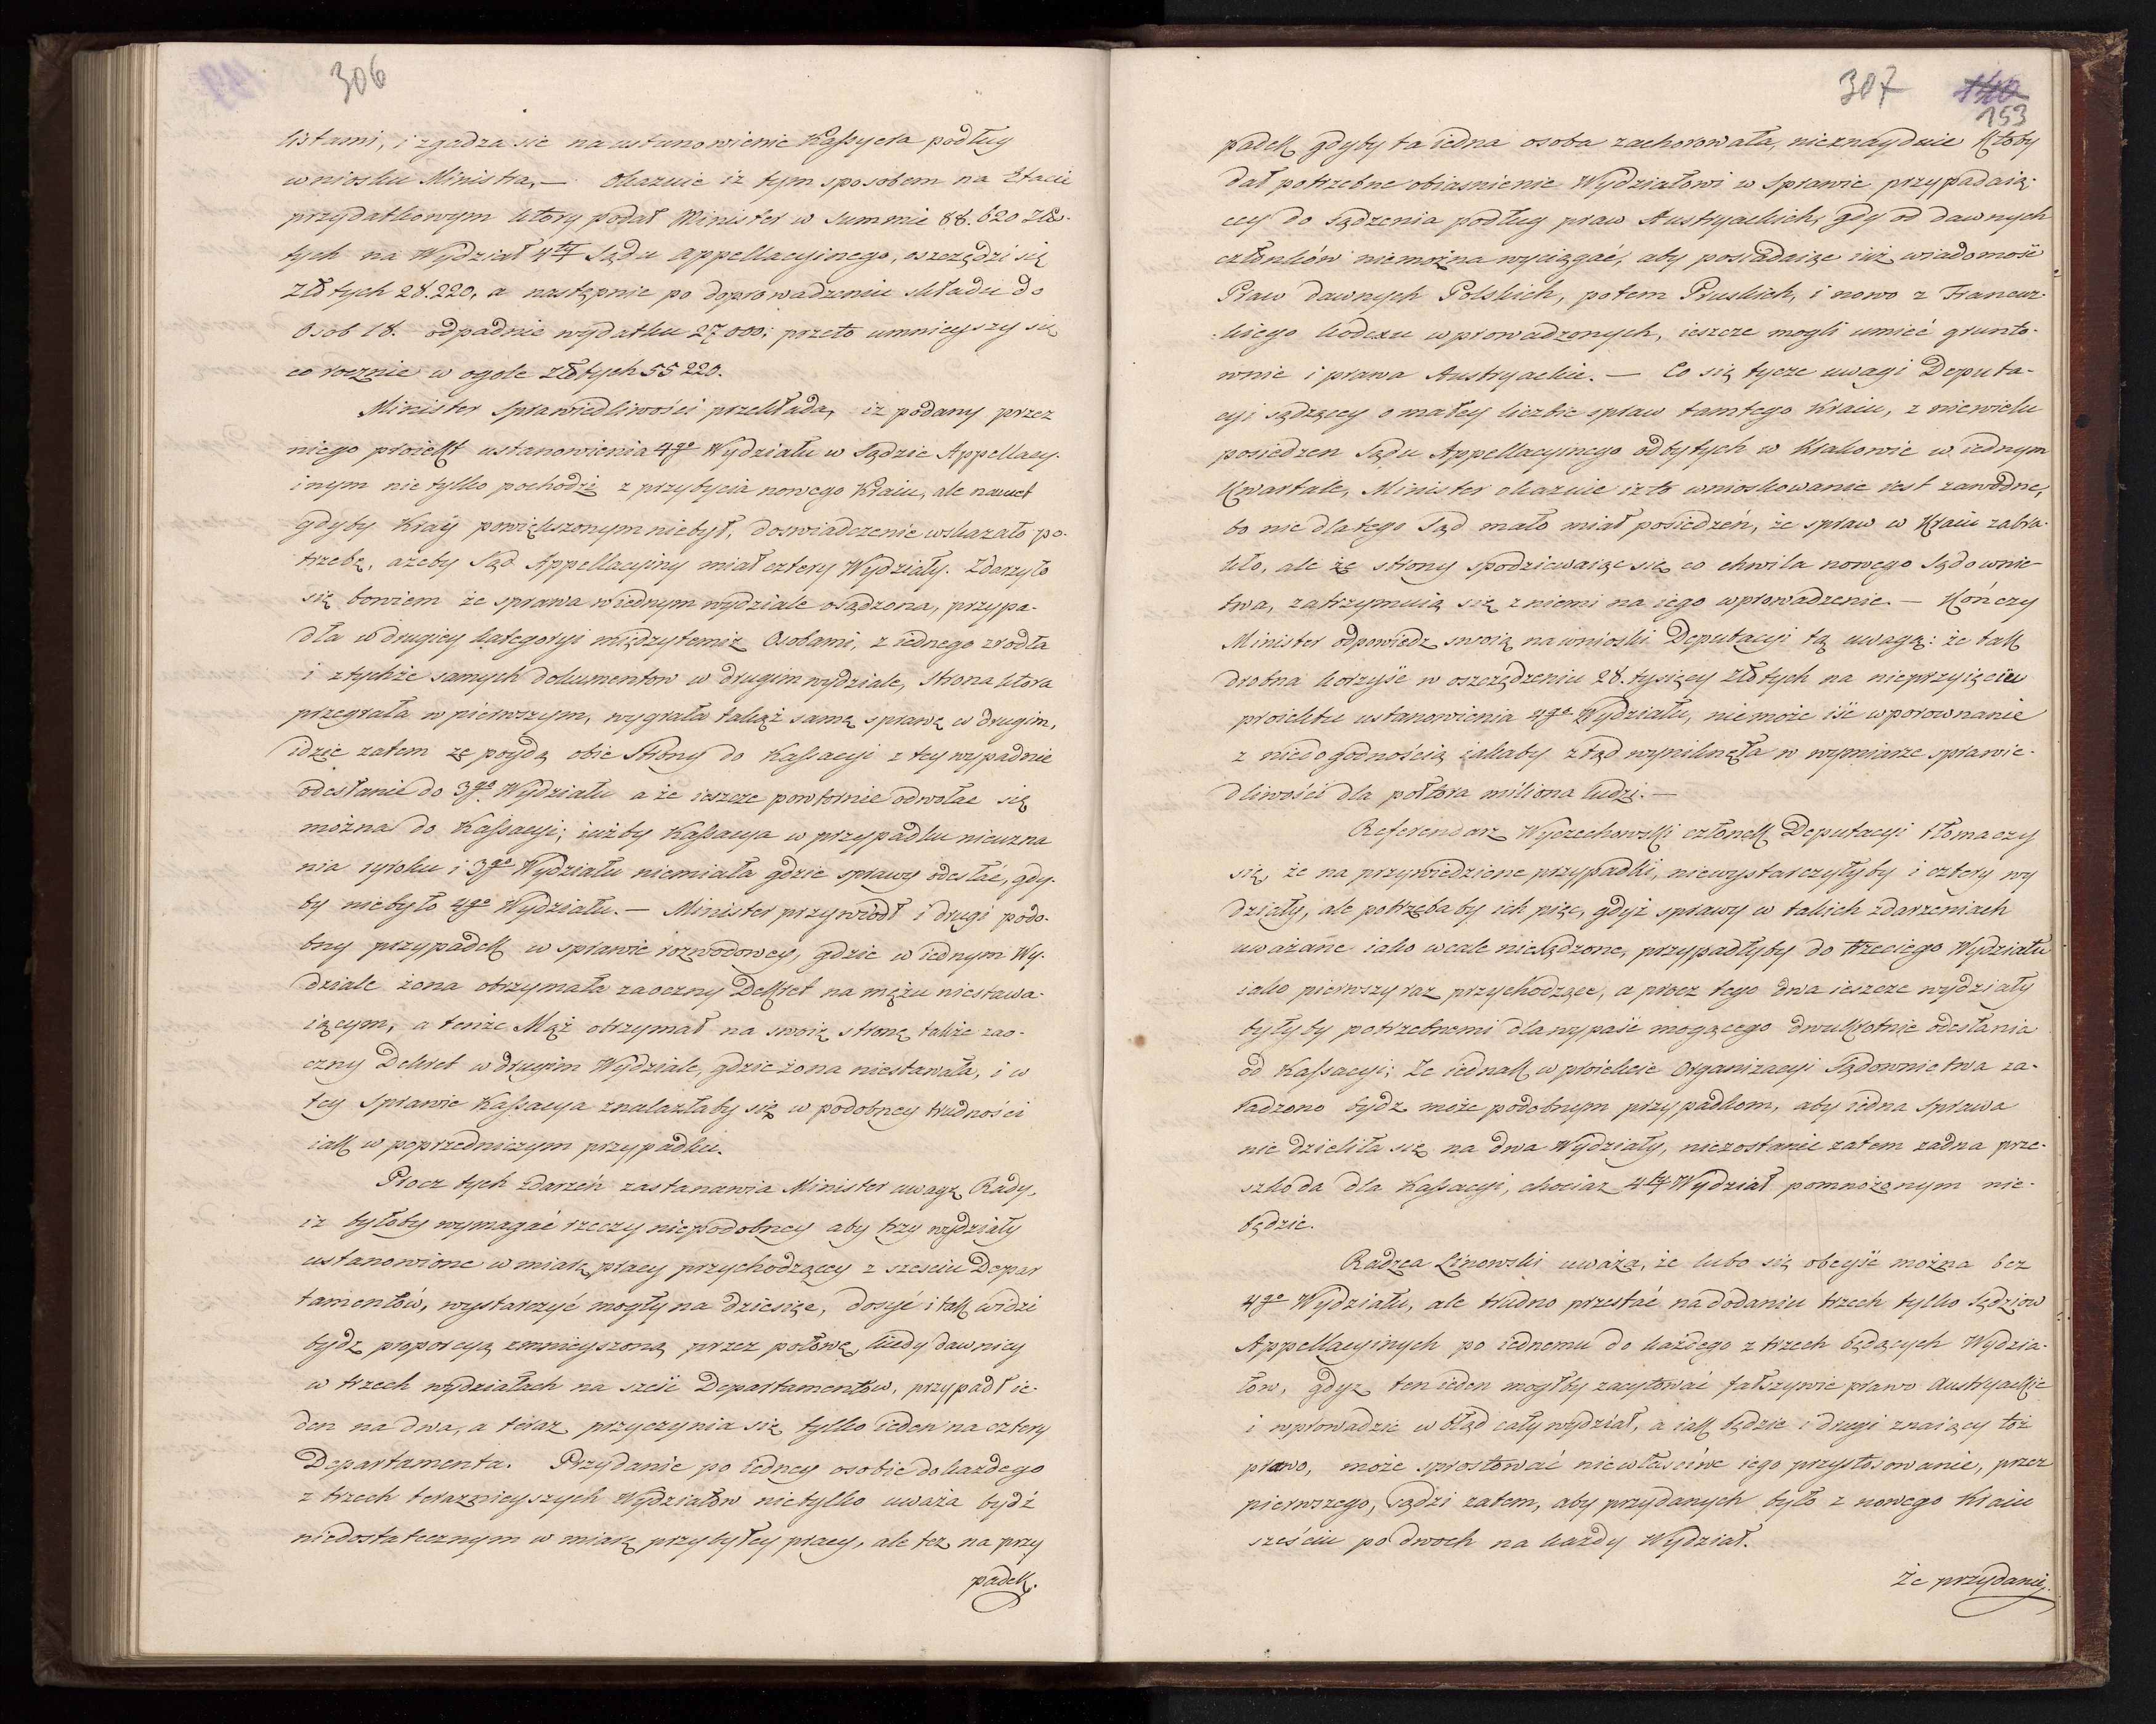 306
listami, i zgadza sie na ustanowienie Kassyera podług
wniosku Ministra, — Okazuie iż tym sposobem na Etacie
przydatkowym ktory podał Minister w Summie 88.620 Zło-
tych na Wydział 4ty Sądu Appellacyinego, oszczędzi się
Złotych 28.220, a następnie po doprowadzeniu składu do
Osob 18. odpadnie wydatku 27,000; przeto umnieyszy się
co rocznie w ogole Złotych 55 220.
Minister Sprawiedliwości przekłada, iż podany przez
niego proiekt ustanowienia 4go Wydziału w Sądzie Appellacy-
inym nie tylko pochodzi z przybycia nowego Kraiu, ale nawet
gdyby Kray powiększonym niebył, doswiadczenie wskazało po-
trzebę, ażeby Sąd Appellacyiny miał cztery Wydziały. Zdarzyło
się bowiem że sprawa w iednym wydziale osądzona, przypa-
dła w drugiey kategoryi między temiż Osobami, z iednego zrodła
i z tychże samych dokumentow w drugim wydziale, Strona ktora
przegrała w pierwszym, wygrała takąż samą sprawę w drugim,
idzie zatem ze poydą obie Strony do Kassacyi z tey wypadnie
odesłanie do 3go Wydziału a że ieszcze powtornie odwołac się
można do Kassacyi; iużby Kassacya w przypadku nieuzna
nia wyroku i 3go Wydziału niemiała gdzie sprawy odesłać, gdy-
by niebyło 4go Wydziału. — Minister przywiódł i drugi podo-
bny przypadek w sprawie rozwodowey, gdzie w iednym Wy-
dziale żona otrzymała zaoczny Dekret na mężu niestawa-
iącym, a tenże Mąż otrzymał na swoię stronę także zao-
czny Dekret w drugim Wydziale, gdzie żona niestawała, i w
tey Sprawie Kassacya znalazłaby się w podobney trudności
iak w poprzedniczym przypadku.
Procz tych zdarzeń zastanawia Minister uwagę Rady,
iż byłoby wymagać rzeczy niepodobney aby trzy wydziały
ustanowione w miarę pracy przychodzącey z sześciu Depar
tamentów, wystarczyć mogły na dziesięc, dosyć i tak widzi
bydz proporcyą zmnieyszoną przez połowę, kiedy dawniey
w trzech wydziałach na sześć Departamentow, przypadł ie-
den na dwa, a teraz przyczynia się tylko ieden na cztery
Departamenta. Przydanie po iedney osobie do każdego
z trzech teraznieyszych Wydziałow nietylko uważa bydź
niedostatecznym w miarę przybyłey pracy, ale tez na przy
padek.
307
140
153
padek gdyby ta iedna osoba zachorowała, nieznaydzie ktoby
dał potrzebne obiasnienie Wydziałowi w Sprawie przypadaią-
cey do sądzenia podług praw Austryackich, gdy od dawnych
członków niemożna wyciągać, aby posiadaiąc iuż wiadomość
Praw dawnych Polskich, potem Pruskich, i nowo z Francuz-
kiego kodexu wprowadzonych, ieszcze mogli umieć grunto-
wnie i prawa Austryackie. — Co się tycze uwagi Deputa-
cyi sądzącey o małey liczbie spraw tamtego Kraiu, z niewielu
posiedzen Sądu Appellacyinego odbytych w Krakowie w iednym
Kwartale, Minister okazuie iż to wnioskowanie iest zawodne,
bo nie dlatego Sąd mało miał posiedzeń, że spraw w Kraiu zabra-
kło, ale że strony spodziewaiąc się co chwila nowego Sądownic-
twa, zatrzymuią się z niemi na iego wprowadzenie. — Kończy
Minister odpowiedz swoią na wnioski Deputacyi tą uwagą: że tak
drobna korzyść w oszczędzeniu 28. tysięcy złotych na nieprzyięciu
proiektu ustanowienia 4go Wydziału, niemoże iść w porownanie
z niedogodnością iakaby ztąd wyniknęła w wymiarze sprawie-
dliwości dla połtora miliona ludzi. —
Referendarz Wyczechowski członek Deputacyi tłomaczy
się, że na przywiedzione przypadki, niewystarczyłyby i cztery wy
działy, ale potrzebaby ich pięc, gdyż sprawy w takich zdarzeniach
uważane iako wcale niesądzone, przypadłyby do trzeciego Wydziału
iako pierwszy raz przychodzące, a procz tego dwa ieszcze wydziały
byłyby potrzebnemi dla wypaść mogącego dwukrotnie odesłania
od Kassacyi; Ze iednak w proiekcie Organizacyi Sądownictwa za-
radzono bydz może podobnym przypadkom, aby iedna Sprawa
nie dzieliła się na dwa Wydziały, niezostanie zatem żadna prze-
szkoda dla Kassacyi, chociaz 4ty Wydział pomnożonym nie-
będzie.
Radzca Linowski uważa, że lubo się obeyść można bez
4go Wydziału, ale trudno przestać na dodaniu trzech tylko Sędziow
Appellacyinych po iednemu do każdego z trzech będących Wydzia-
łów, gdyż ten ieden mogłby zacytować fałszywie prawo Austryackie
i wprowadzić w błąd cały wydział, a iak będzie i drugi znaiący toż
prawo, może sprostować niewłaściwe iego przystosowanie, przez
pierwszego, sądzi zatem, aby przydanych było z nowego Kraiu
sześciu po dwoch na każdy Wydział.
Że przydanie,